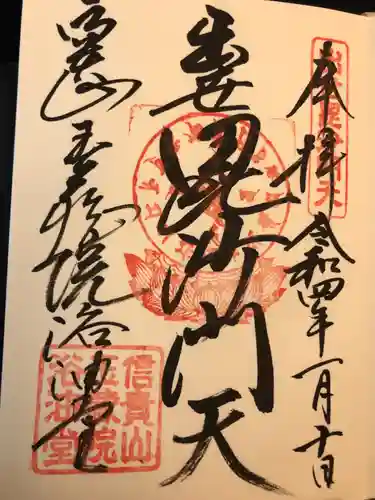 奉拝 令和四年一月十日
出世毘沙門天
信貴山玉蔵院浴油堂
信貴山
玉蔵院
浴油堂